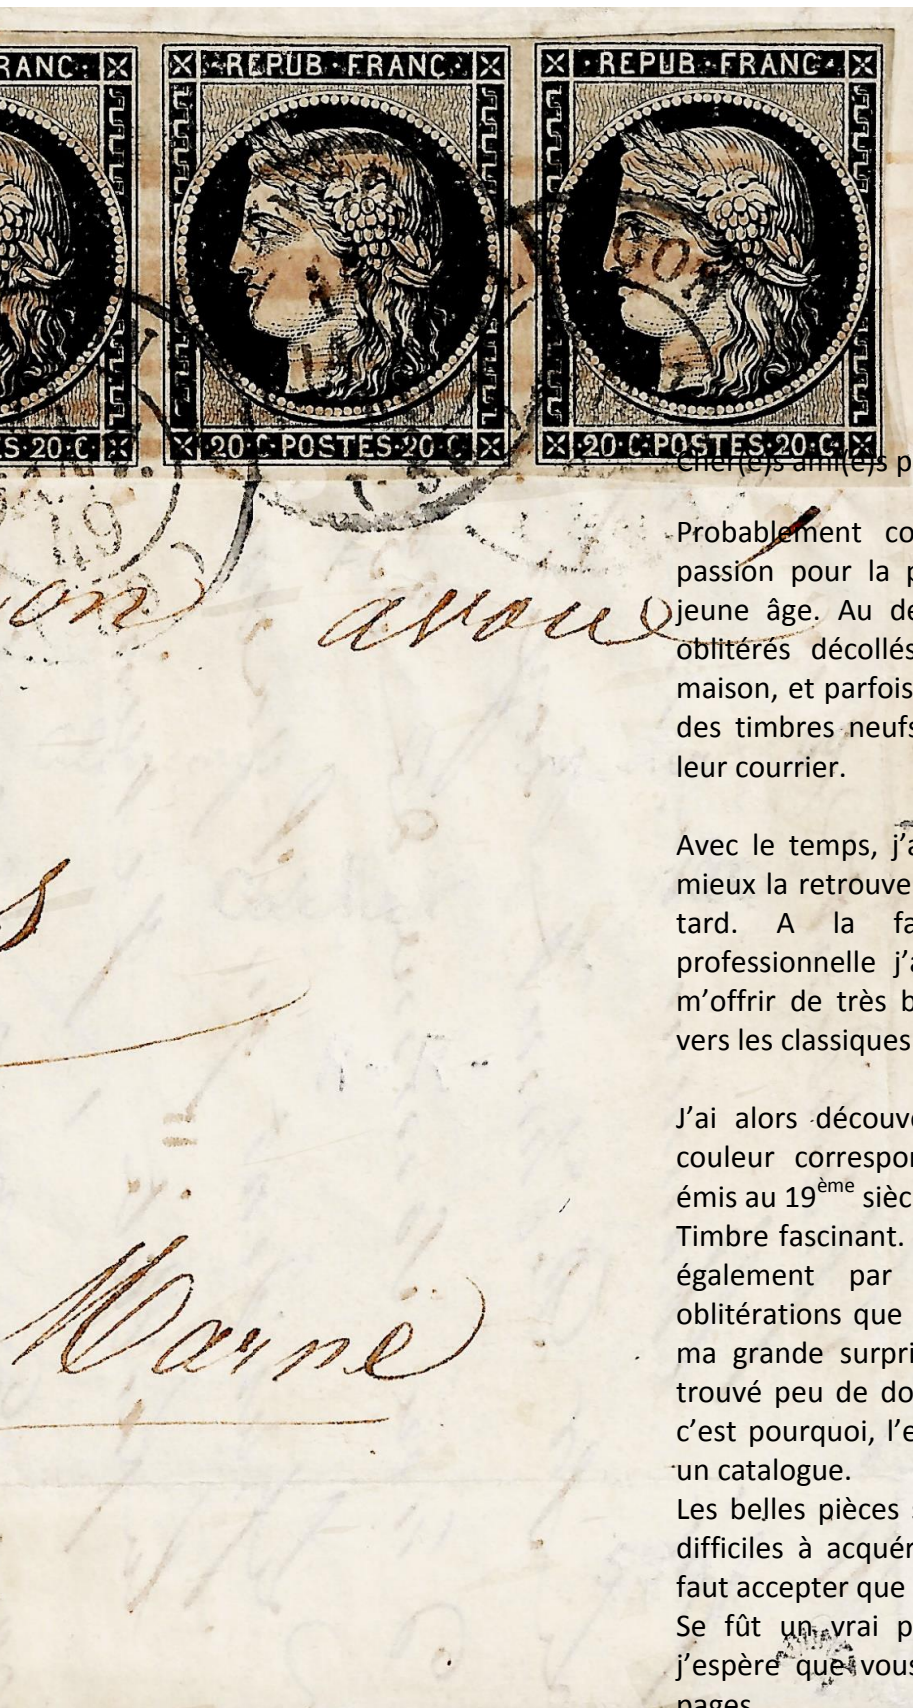 RANC · REPUB · FRANC · · REPUB · FRANC ·
S · 20 · C 20 · C · POSTES · 20 · C 20 · C · POSTES · 20 · C
JANV.
49
on avoué
s
Marne
Cher(e)s ami(e)s p
Probablement co
passion pour la p
jeune âge. Au dé
oblitérés décollés
maison, et parfois
des timbres neufs
leur courrier.
Avec le temps, j’a
mieux la retrouve
tard. A la fa
professionnelle j’a
m’offrir de très b
vers les classiques
J’ai alors découve
couleur correspon
émis au 19ème sièc
Timbre fascinant.
également par
oblitérations que
ma grande surpri
trouvé peu de do
c’est pourquoi, l’e
un catalogue.
Les belles pièces
difficiles à acquér
faut accepter que
Se fût un vrai p
j’espère que vous
pages